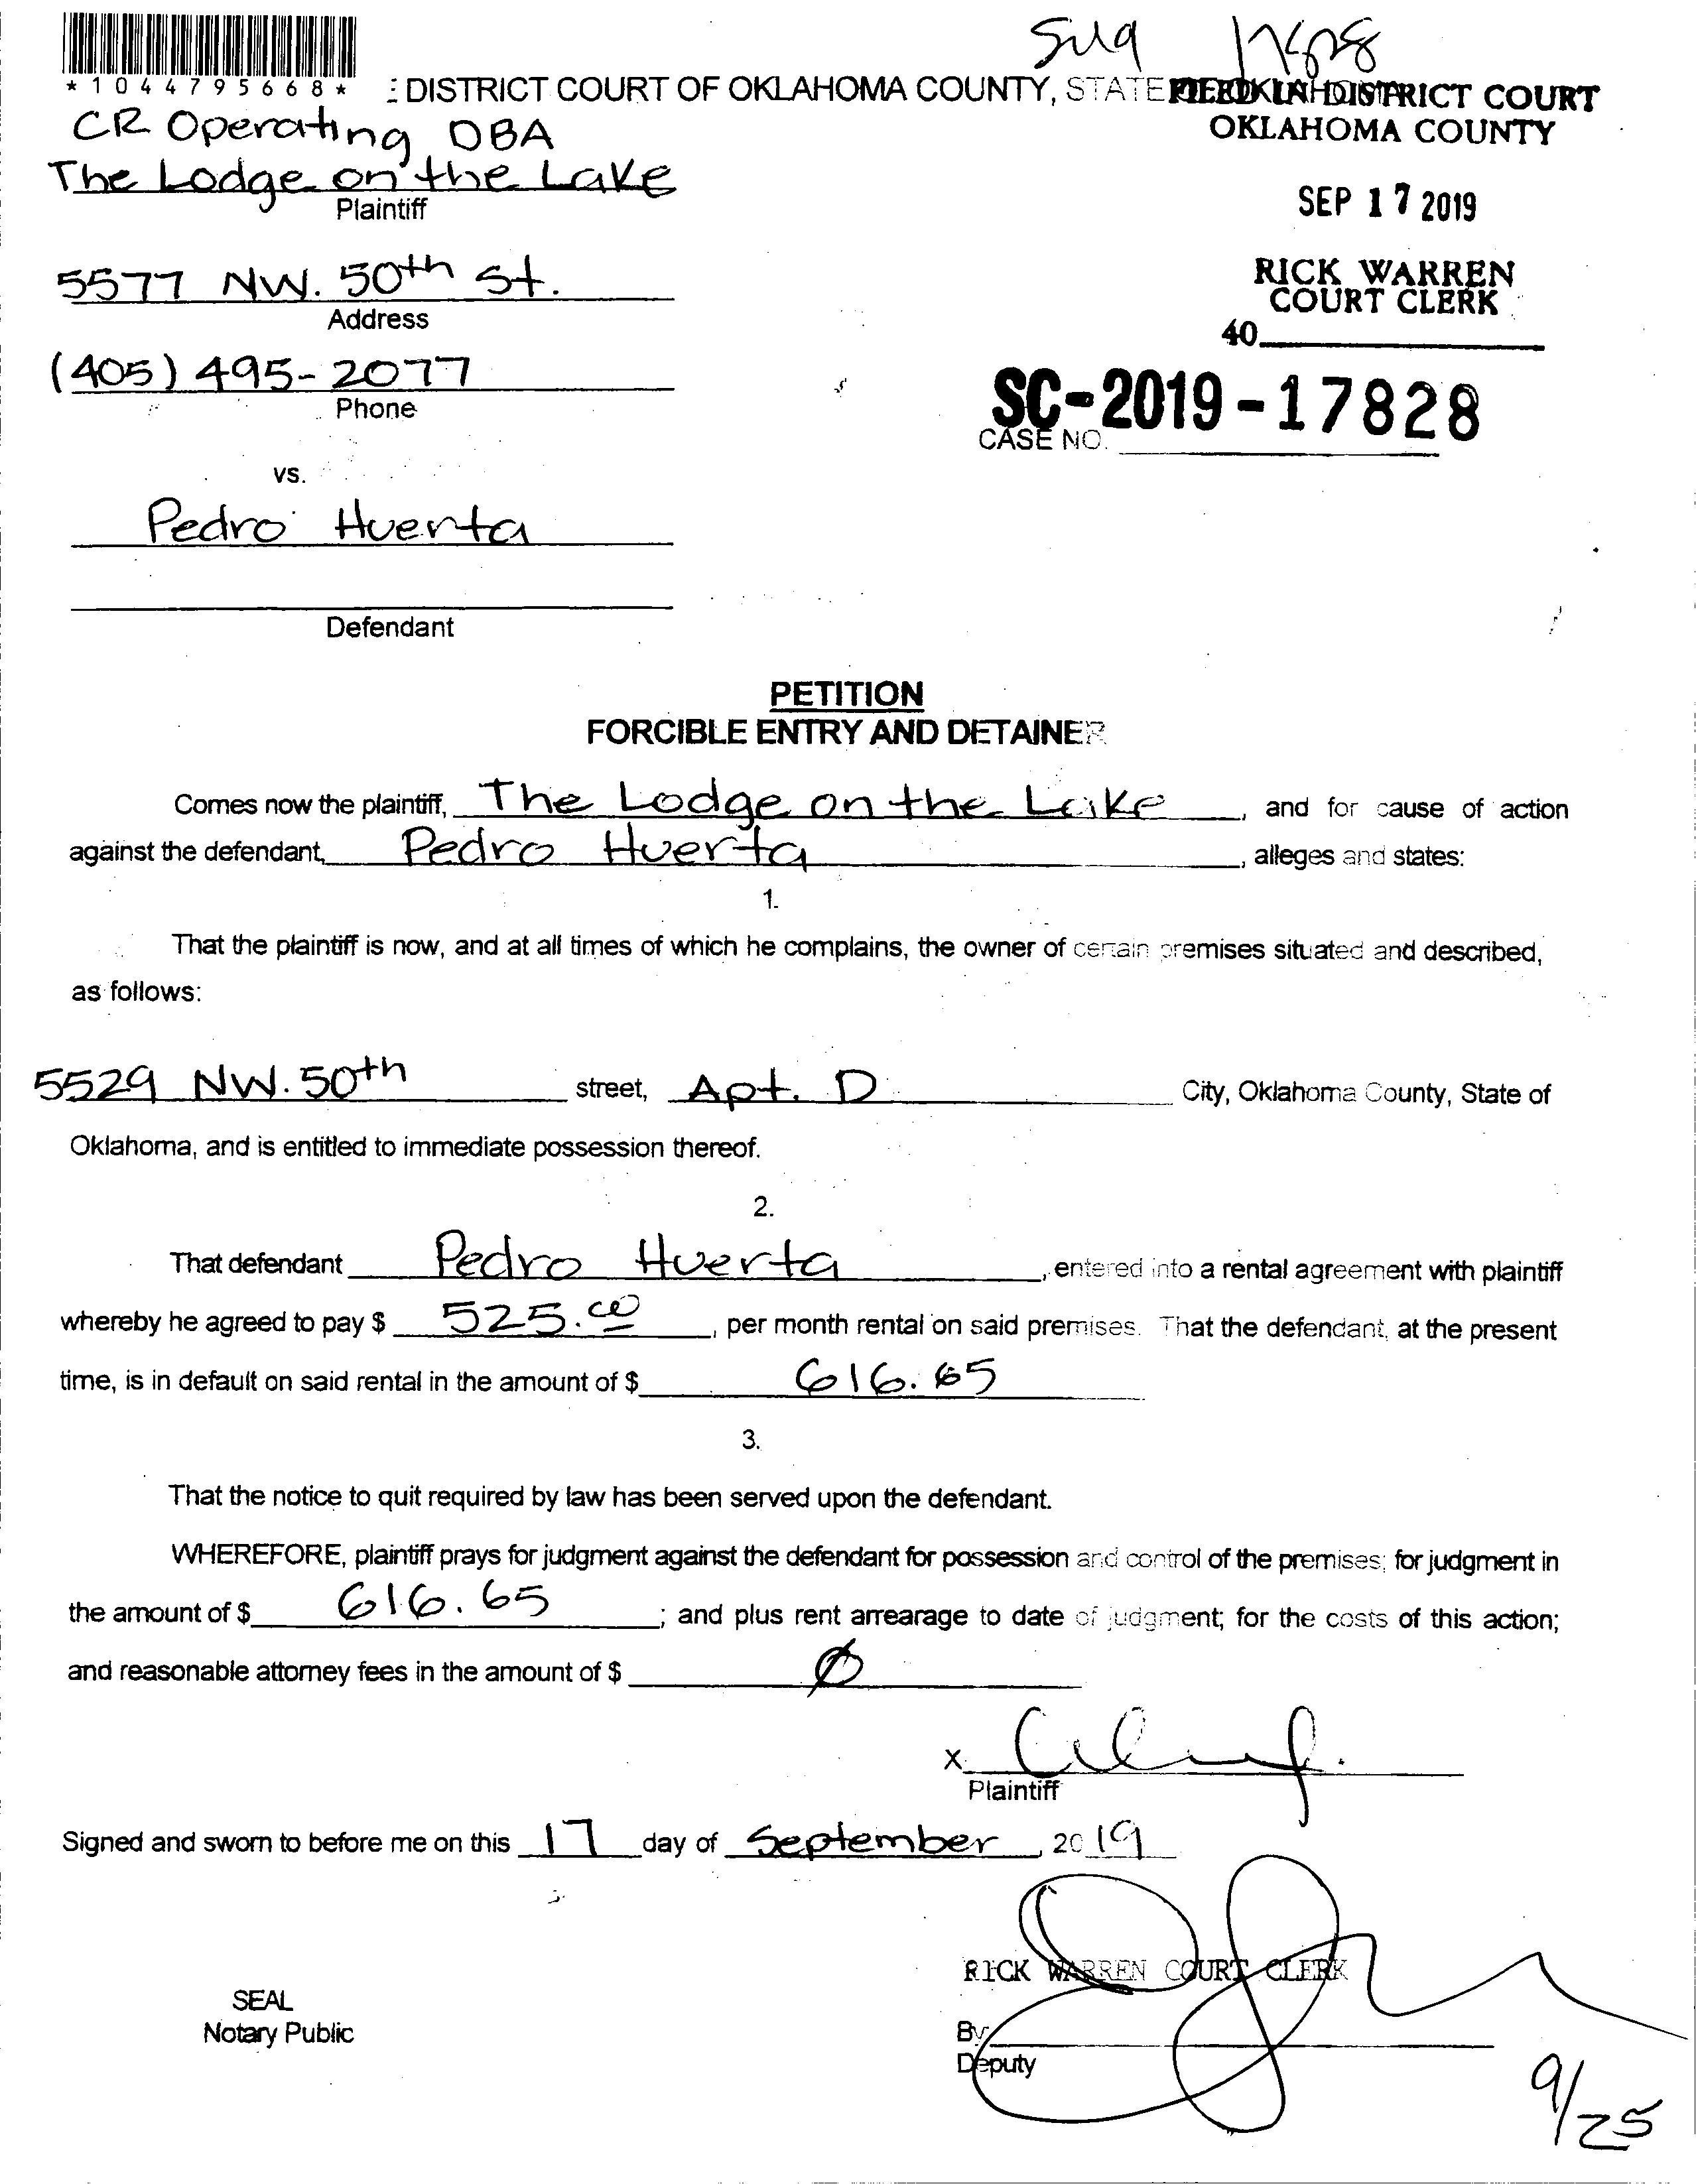 *1044795668*
DISTRICT COURT OF OKLAHOMA COUNTY, STATE
FILED IN DISTRICT COURT
OKLAHOMA COUNTY
CR Operating DBA
The Lodge on the Lake
Plaintiff
SEP 17 2019
5577 NW. 50th St.
Address
RICK WARREN
COURT CLERK
40
(405) 495-2077
Phone
SC-2019-17828
CASE NO.
vs.
Pedro Huerta
Defendant
PETITION
FORCIBLE ENTRY AND DETAINER
Comes now the plaintiff, The Lodge on the Lake, and for cause of action
against the defendant, Pedro Huerta, alleges and states:
1.
That the plaintiff is now, and at all times of which he complains, the owner of certain premises situated and described,
as follows:
5529 NW. 50th street, Apt. D City, Oklahoma County, State of
Oklahoma, and is entitled to immediate possession thereof.
2.
That defendant Pedro Huerta, entered into a rental agreement with plaintiff
whereby he agreed to pay $ 525.00, per month rental on said premises. That the defendant, at the present
time, is in default on said rental in the amount of $ 616.65
3.
That the notice to quit required by law has been served upon the defendant.
WHEREFORE, plaintiff prays for judgment against the defendant for possession and control of the premises; for judgment in
the amount of $ 616.65; and plus rent arrearage to date of judgment; for the costs of this action;
and reasonable attorney fees in the amount of $ Ø
X
Plaintiff
Signed and sworn to before me on this 17 day of September, 2019
RICK WARREN COURT CLERK
SEAL
Notary Public
By
Deputy
9/25